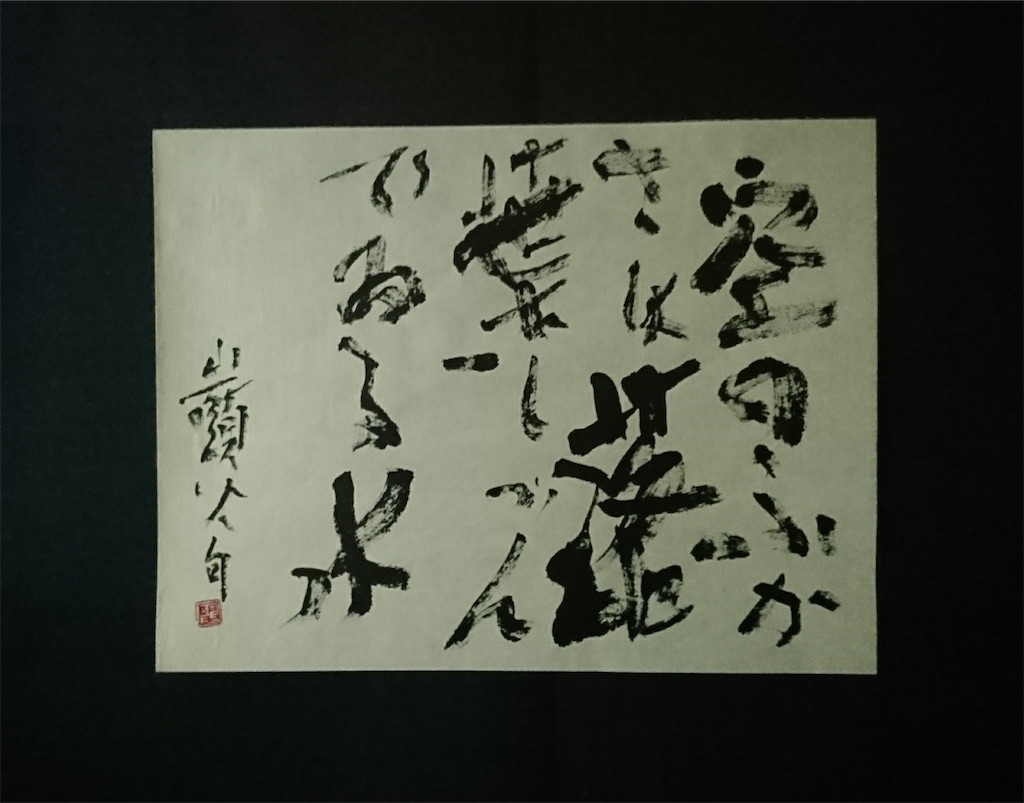 空のふか
さは落
葉しづん
でゐる水
山頭火句